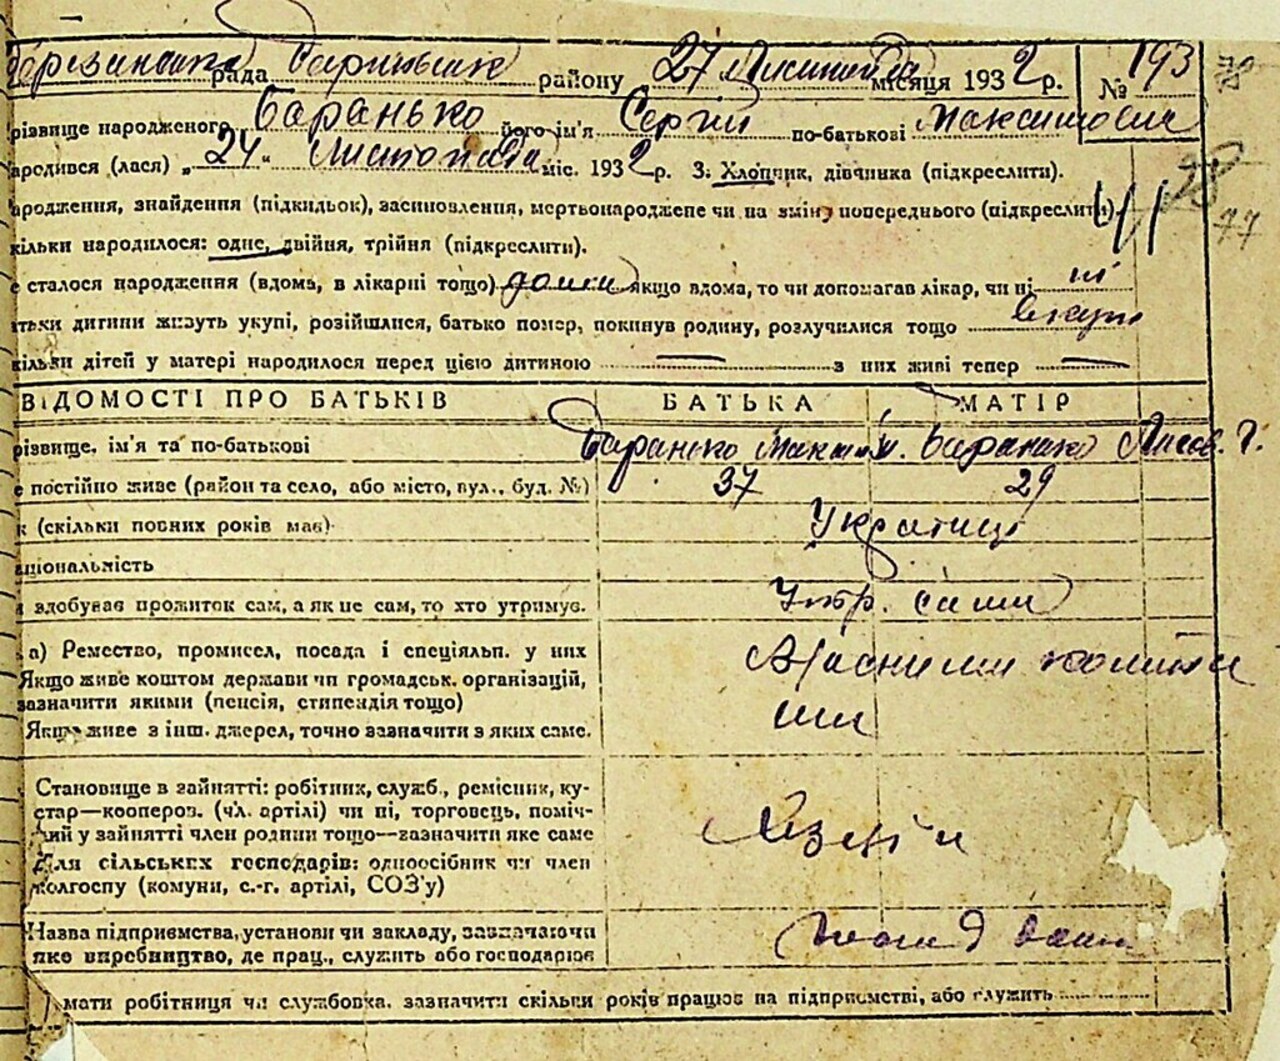 рада Баришівськ району 27 Листопада місяця 1932 р. № 193
різвище народженого Баранько його ім'я Сергій по-батькові Максимович
ародився (лася) „24" Листопада міс. 1932 р. 3. Хлопчик, дівчинка (підкреслити).
ародження, знайдення (підкидьок), засиновлення, мертвонароджене чи на зміну попереднього (підкреслити).
кільки народилося: одне, двійня, трійня (підкреслити).
77
е сталося народження (вдома, в лікарні тощо) дома якщо вдома, то чи допомагав лікар, чи ні ні
атьки дитини живуть укупі, розійшлися, батько помер, покинув родину, розлучилися тощо вкупі
кільки дітей у матері народилося перед цією дитиною — з них живі тепер —
ВІДОМОСТІ ПРО БАТЬКІВ БАТЬКА МАТІР
різвище, ім'я та по-батькові Баранько Баранько
е постійно живе (район та село, або місто, вул., буд. №) 37 29
к (скільки повних років має) Українці
аціональність
и здобуває прожиток сам, а як не сам, то хто утримує. сами
а) Ремество, промисел, посада і спеціяльн. у них Власними
Якщо живе коштом держави чи громадськ. організацій,
зазначити якими (пенсія, стипендія тощо)
Якщо живе з інш. джерел, точно зазначити з яких саме.
Становище в зайнятті: робітник, служб., ремісник, ку-
стар—коопероз. (чл. артілі) чи ні, торговець, поміч-
ний у зайнятті член родини тощо—зазначити яке саме
Для сільських господарів: одноосібник чи член
колгоспу (комуни, с.-г. артілі, СОЗ'у)
Назва підприємства, установи чи закладу, зазначаючи
яке виробництво, де прац., служить або господарює
мати робітниця чи службовка, зазначити скільки років працює на підприємстві, або служить